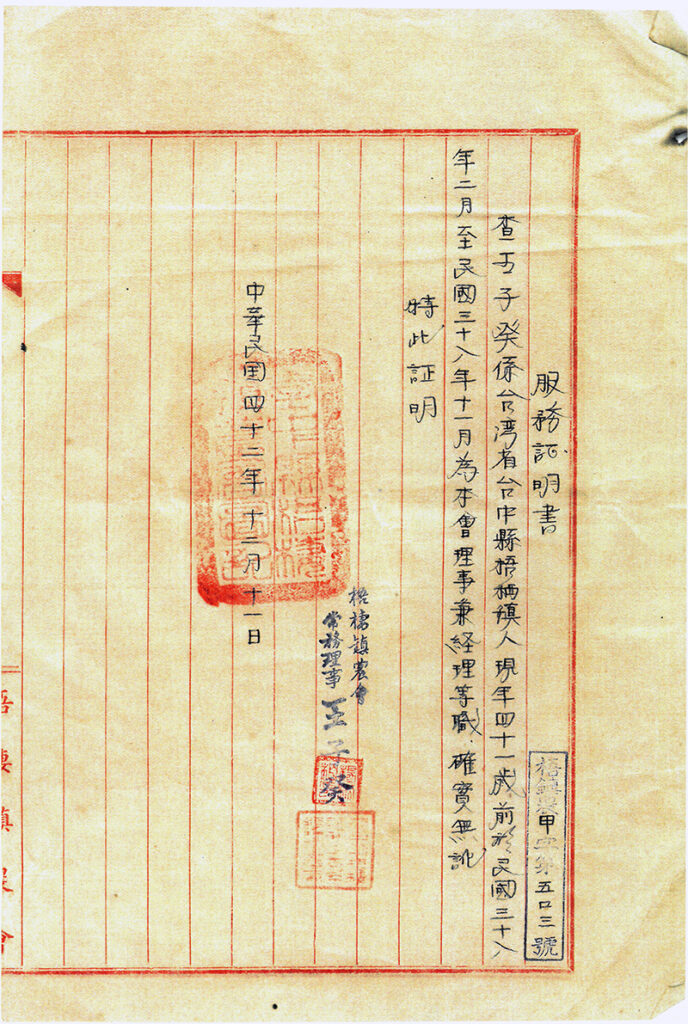 服務証明書
梧鎮農甲字第五〇三號
查王子癸係台湾省台中縣梧栖鎮人現年四十一歲前於民國三十八
年二月至民國三十八年十一月為本會理事兼経理等職．確實無訛
特此証明
梧棲鎮農會
常務理事 王子癸
中華民国四十二年十二月十一日
梧棲鎮農會